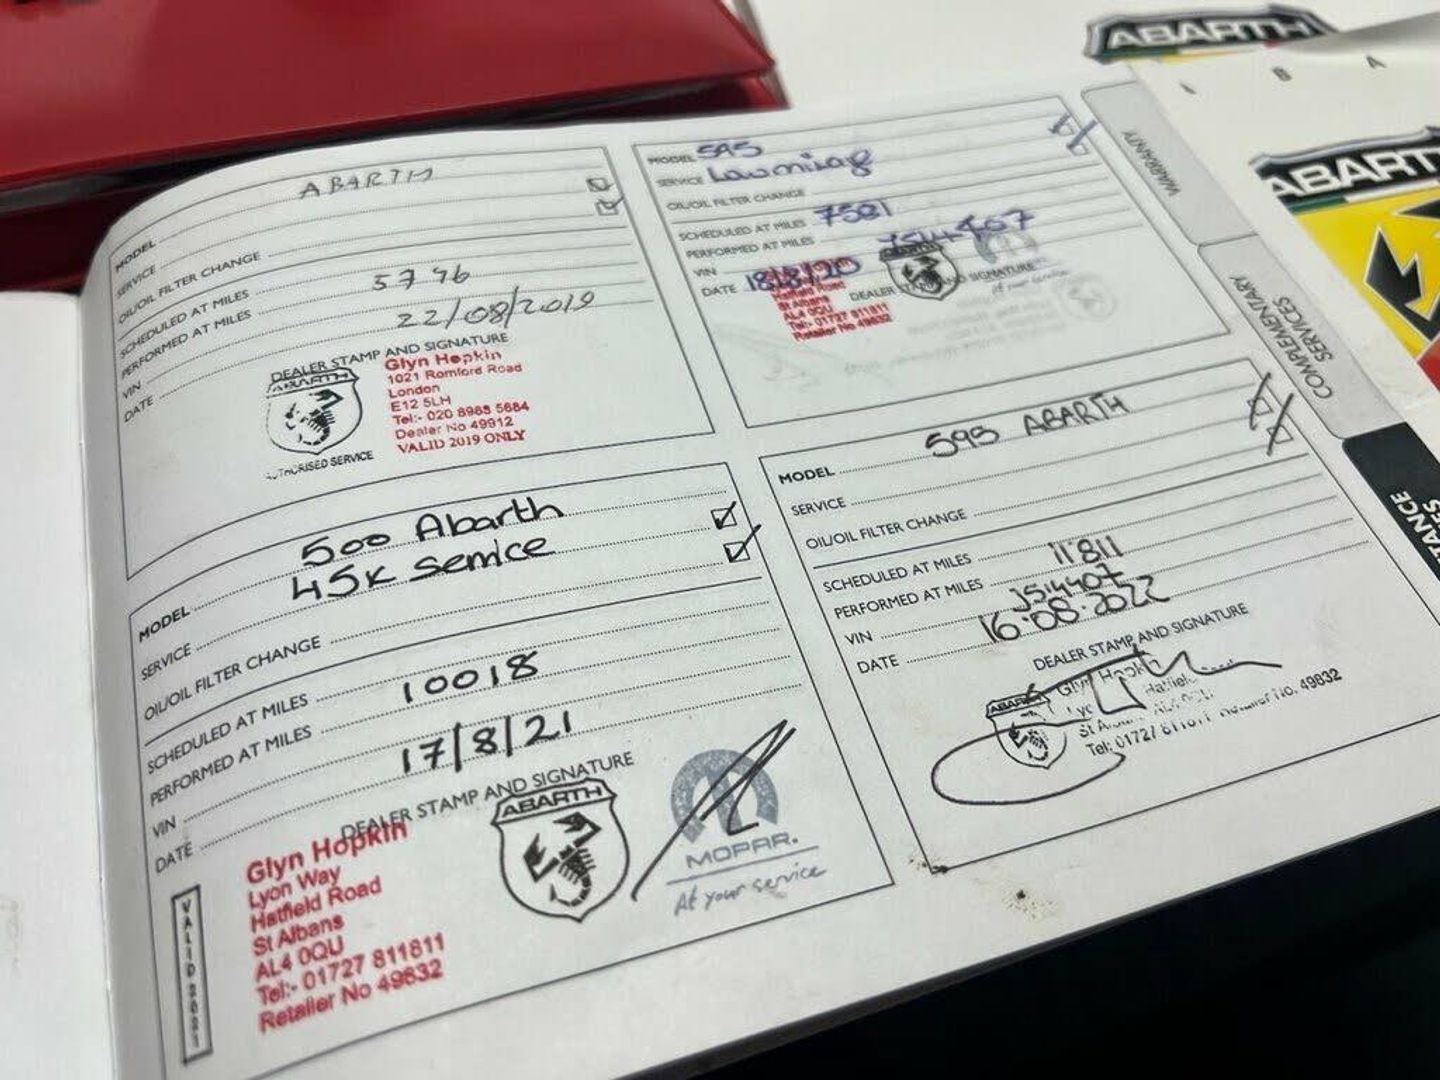 ABARTH
ABARTH
MODEL ABARTH
SERVICE
OIL/OIL FILTER CHANGE
SCHEDULED AT MILES
PERFORMED AT MILES 5796
VIN
DATE 22/08/2019
DEALER STAMP AND SIGNATURE
ABARTH
Glyn Hopkin
1021 Romford Road
London
E12 5LH
Tel:- 020 8985 5684
Dealer No 49912
VALID 2019 ONLY
AUTHORISED SERVICE
MODEL 595
SERVICE
OIL/OIL FILTER CHANGE
SCHEDULED AT MILES
PERFORMED AT MILES 7501
VIN JS14407
DATE 18/8/20
DEALER STAMP AND SIGNATURE
ABARTH
Hatfield Road
St Albans
AL4 0QU
Tel:- 01727 811811
Retailer No 49832
At your service
MODEL 500 Abarth
SERVICE 45K Service
OIL/OIL FILTER CHANGE
SCHEDULED AT MILES
PERFORMED AT MILES 10018
VIN
DATE 17/8/21
DEALER STAMP AND SIGNATURE
Glyn Hopkin
Lyon Way
Hatfield Road
St Albans
AL4 0QU
Tel:- 01727 811811
Retailer No 49832
ABARTH
MOPAR.
At your service
VALID 2021
MODEL 595 ABARTH
SERVICE
OIL/OIL FILTER CHANGE
SCHEDULED AT MILES
PERFORMED AT MILES 11811
VIN JS14407
DATE 16.08.2022
DEALER STAMP AND SIGNATURE
ABARTH
Glyn Hopkin
Hatfield
St
Tel: 01727 811811 Retailer No. 49832
WARRANTY
COMPLEMENTARY
SERVICES